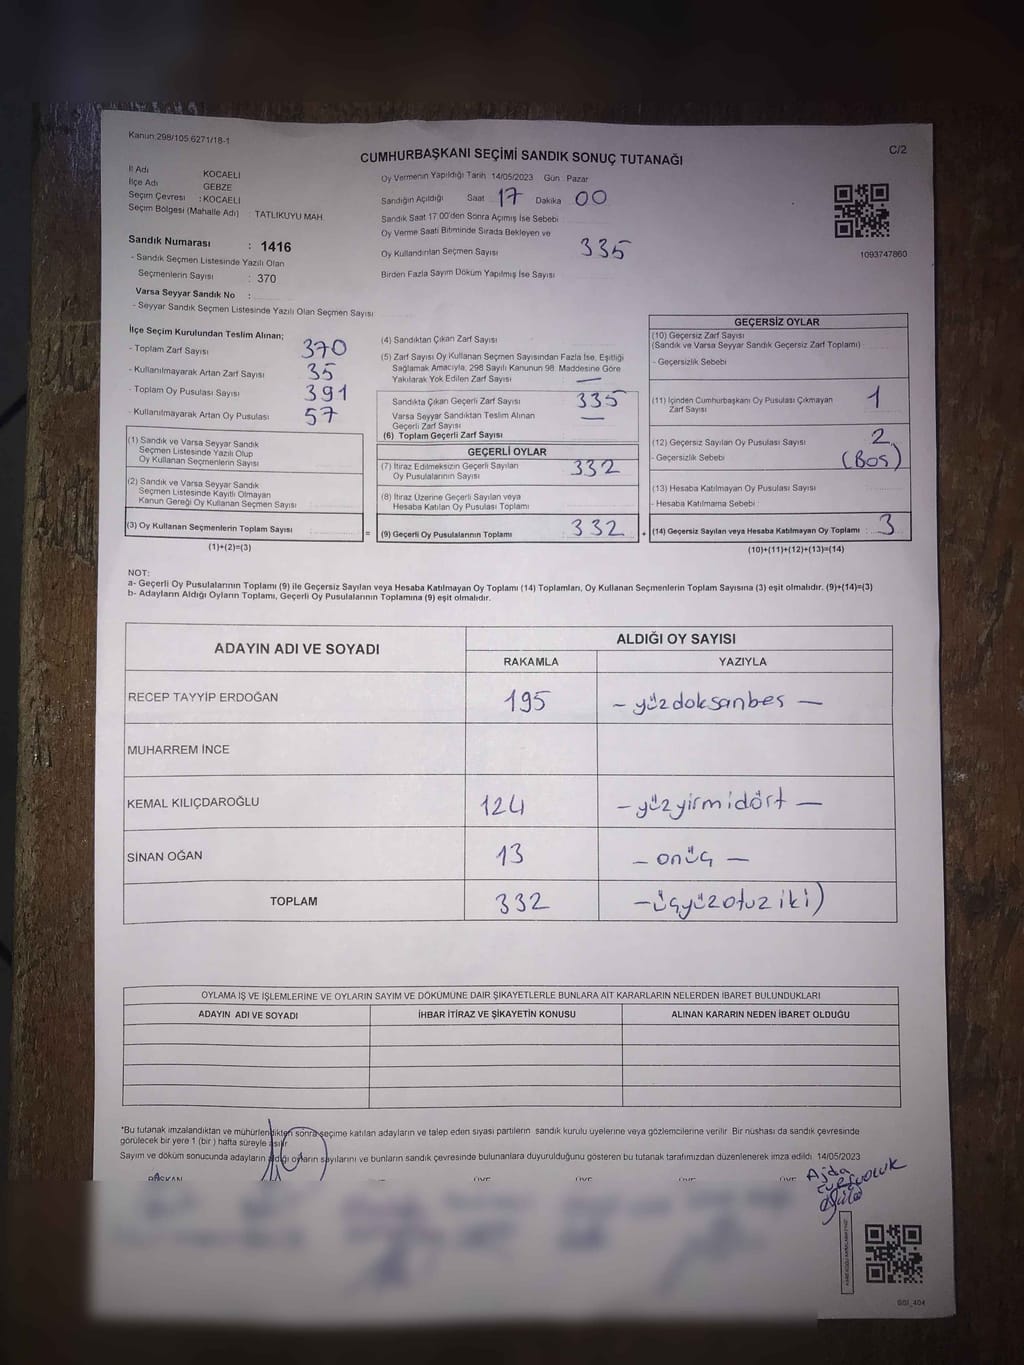 Kanun:298/105.6271/18-1
C/2
CUMHURBAŞKANI SEÇİMİ SANDIK SONUÇ TUTANAĞI
İl Adı KOCAELİ
İlçe Adı GEBZE
Seçim Çevresi : KOCAELİ
Seçim Bölgesi (Mahalle Adı) TATLIKUYU MAH.
Sandık Numarası : 1416
- Sandık Seçmen Listesinde Yazılı Olan
Seçmenlerin Sayısı : 370
Varsa Seyyar Sandık No :
- Seyyar Sandık Seçmen Listesinde Yazılı Olan Seçmen Sayısı
Oy Vermenin Yapıldığı Tarih 14/05/2023 Gün Pazar
Sandığın Açıldığı Saat 17 Dakika 00
Sandık Saat 17:00'den Sonra Açımış İse Sebebi
Oy Verme Saati Bitiminde Sırada Bekleyen ve
Oy Kullandırılan Seçmen Sayısı 335
Birden Fazla Sayım Döküm Yapılmış İse Sayısı
1093747860
İlçe Seçim Kurulundan Teslim Alınan;
- Toplam Zarf Sayısı 370
- Kullanılmayarak Artan Zarf Sayısı 35
- Toplam Oy Pusulası Sayısı 391
- Kullanılmayarak Artan Oy Pusulası 57
(1) Sandık ve Varsa Seyyar Sandık
Seçmen Listesinde Yazılı Olup
Oy Kullanan Seçmenlerin Sayısı
(2) Sandık ve Varsa Seyyar Sandık
Seçmen Listesinde Kayıtlı Olmayan
Kanun Gereği Oy Kullanan Seçmen Sayısı
(3) Oy Kullanan Seçmenlerin Toplam Sayısı
(1)+(2)=(3)
=
(4) Sandıktan Çıkan Zarf Sayısı
(5) Zarf Sayısı Oy Kullanan Seçmen Sayısından Fazla İse, Eşitliği
Sağlamak Amacıyla, 298 Sayılı Kanunun 98. Maddesine Göre
Yakılarak Yok Edilen Zarf Sayısı —
Sandıkta Çıkan Geçerli Zarf Sayısı 335
Varsa Seyyar Sandıktan Teslim Alınan
Geçerli Zarf Sayısı —
(6) Toplam Geçerli Zarf Sayısı
GEÇERLİ OYLAR
(7) İtiraz Edilmeksizin Geçerli Sayılan
Oy Pusulalarının Sayısı 332
(8) İtiraz Üzerine Geçerli Sayılan veya
Hesaba Katılan Oy Pusulası Toplamı
(9) Geçerli Oy Pusulalarının Toplamı 332
+
GEÇERSİZ OYLAR
(10) Geçersiz Zarf Sayısı
(Sandık ve Varsa Seyyar Sandık Geçersiz Zarf Toplamı)
- Geçersizlik Sebebi
(11) İçinden Cumhurbaşkanı Oy Pusulası Çıkmayan
Zarf Sayısı 1
(12) Geçersiz Sayılan Oy Pusulası Sayısı 2
- Geçersizlik Sebebi (Bos)
(13) Hesaba Katılmayan Oy Pusulası Sayısı
- Hesaba Katılmama Sebebi
(14) Geçersiz Sayılan veya Hesaba Katılmayan Oy Toplamı : 3
(10)+(11)+(12)+(13)=(14)
NOT:
a- Geçerli Oy Pusulalarının Toplamı (9) ile Geçersiz Sayılan veya Hesaba Katılmayan Oy Toplamı (14) Toplamları, Oy Kullanan Seçmenlerin Toplam Sayısına (3) eşit olmalıdır. (9)+(14)=(3)
b- Adayların Aldığı Oyların Toplamı, Geçerli Oy Pusulalarının Toplamına (9) eşit olmalıdır.
ADAYIN ADI VE SOYADI ALDIĞI OY SAYISI
RAKAMLA YAZIYLA
RECEP TAYYİP ERDOĞAN 195 - yüzdoksanbes —
MUHARREM İNCE
KEMAL KILIÇDAROĞLU 124 - yüzyirmidört —
SİNAN OĞAN 13 - onüç —
TOPLAM 332 - üçyüzotuziki)
OYLAMA İŞ VE İŞLEMLERİNE VE OYLARIN SAYIM VE DÖKÜMÜNE DAİR ŞİKAYETLERLE BUNLARA AİT KARARLARIN NELERDEN İBARET BULUNDUKLARI
ADAYIN ADI VE SOYADI İHBAR İTİRAZ VE ŞİKAYETİN KONUSU ALINAN KARARIN NEDEN İBARET OLDUĞU
*Bu tutanak imzalandıktan ve mühürlendikten sonra seçime katılan adayların ve talep eden siyasi partilerin sandık kurulu üyelerine veya gözlemcilerine verilir. Bir nüshası da sandık çevresinde
görülecek bir yere 1 (bir) hafta süreyle asılır.
Sayım ve döküm sonucunda adayların aldığı oyların sayılarını ve bunların sandık çevresinde bulunanlara duyurulduğunu gösteren bu tutanak tarafımızdan düzenlenerek imza edildi. 14/05/2023
BAŞKAN ÜYE ÜYE ÜYE ÜYE
Ajda